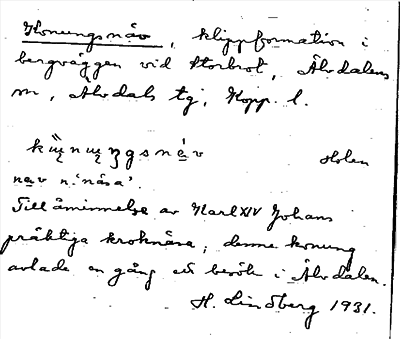 Konungsnåv, klippformation i
bergväggen vid Storbrot, Älvdalens
sn, Älvdals tg, Kopp. l.
Holen
nav n. 'näsa'.
Till åminnelse av Karl XIV Johans
präktiga kroknäsa; denne konung
avlade en gång ett besök i Älvdalen.
H. Lindberg 1931.